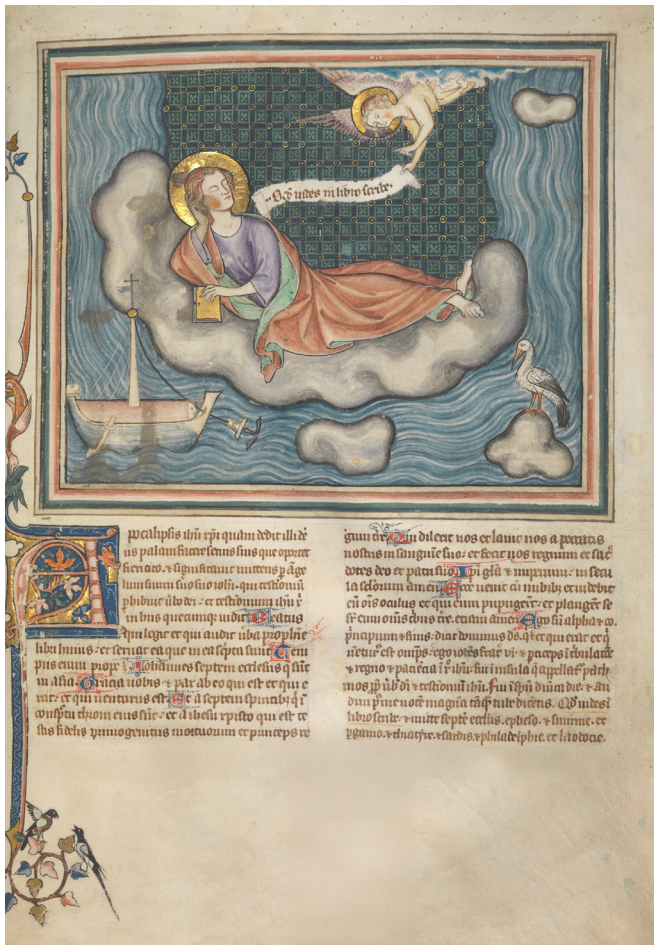 Qđ uides in libro scribe.
Apocalipsis ihū xp̄i quam dedit illi de
us palam facere seruis suis que oportet
fieri cito. et significauit mittens p āge
lum suum seruo suo ioh̄i. qui testimoniū
phibuit ūbo dei. et testimoniū ihū x̄
in hiis quecumqʒ uidit. Beatus
qui legit et qui audit ūba prophe
tie huius. et seruat ea que in ea sc̄pta sunt. Tem
pus enim prope. Iohannes septem ecclesiis q̄ sūt
in asia. Gracia uobis et pax ab eo qui est et qui e
rat. et qui uenturus est. Et a septem spiritibʒ q̄ ī
conspc̄tu throni eius sūt. et a ihesu xpisto qui est te
stis fidelis primogenitus mortuorum et princeps re
gum t̄re. Qui dilexit nos et lauit nos a peccatis
nostris in sanguīe suo. et fecit nos regnum et sac̄
dotes deo et patri suo. Ipi glā et imperium in secu
la seculorum amen. Ecce uenit cū nubibʒ et uidebit
eū om̄s oculus et qui eum pupugert̄. et plangēt se
sup eum om̄s tribus t̄re. etiam amē. Ego sū alpha et ω.
principium et finis. dicit dominus ds. q̄ est et qui erat et q̄
uētur̄ est om̄ps. ego ioh̄es frat̄ ur̄ et pticeps ī tribulatōe
et regno et paciēcia ī x̄ ihū. fui ī insula q̄ appellat̄ path
mos. pp̄ ūbū dī et testimoniū ihū. fui ī sp̄u dn̄ica die. et au
diui post me uocē magnā tāqʒ tube dicētis. Qđ uides ī
libro scribe. et mitte septē ecc̄liis. epheso. et smirne. et
pgamo. et thiatire. et sardis. et philadelphie. et laodocie.